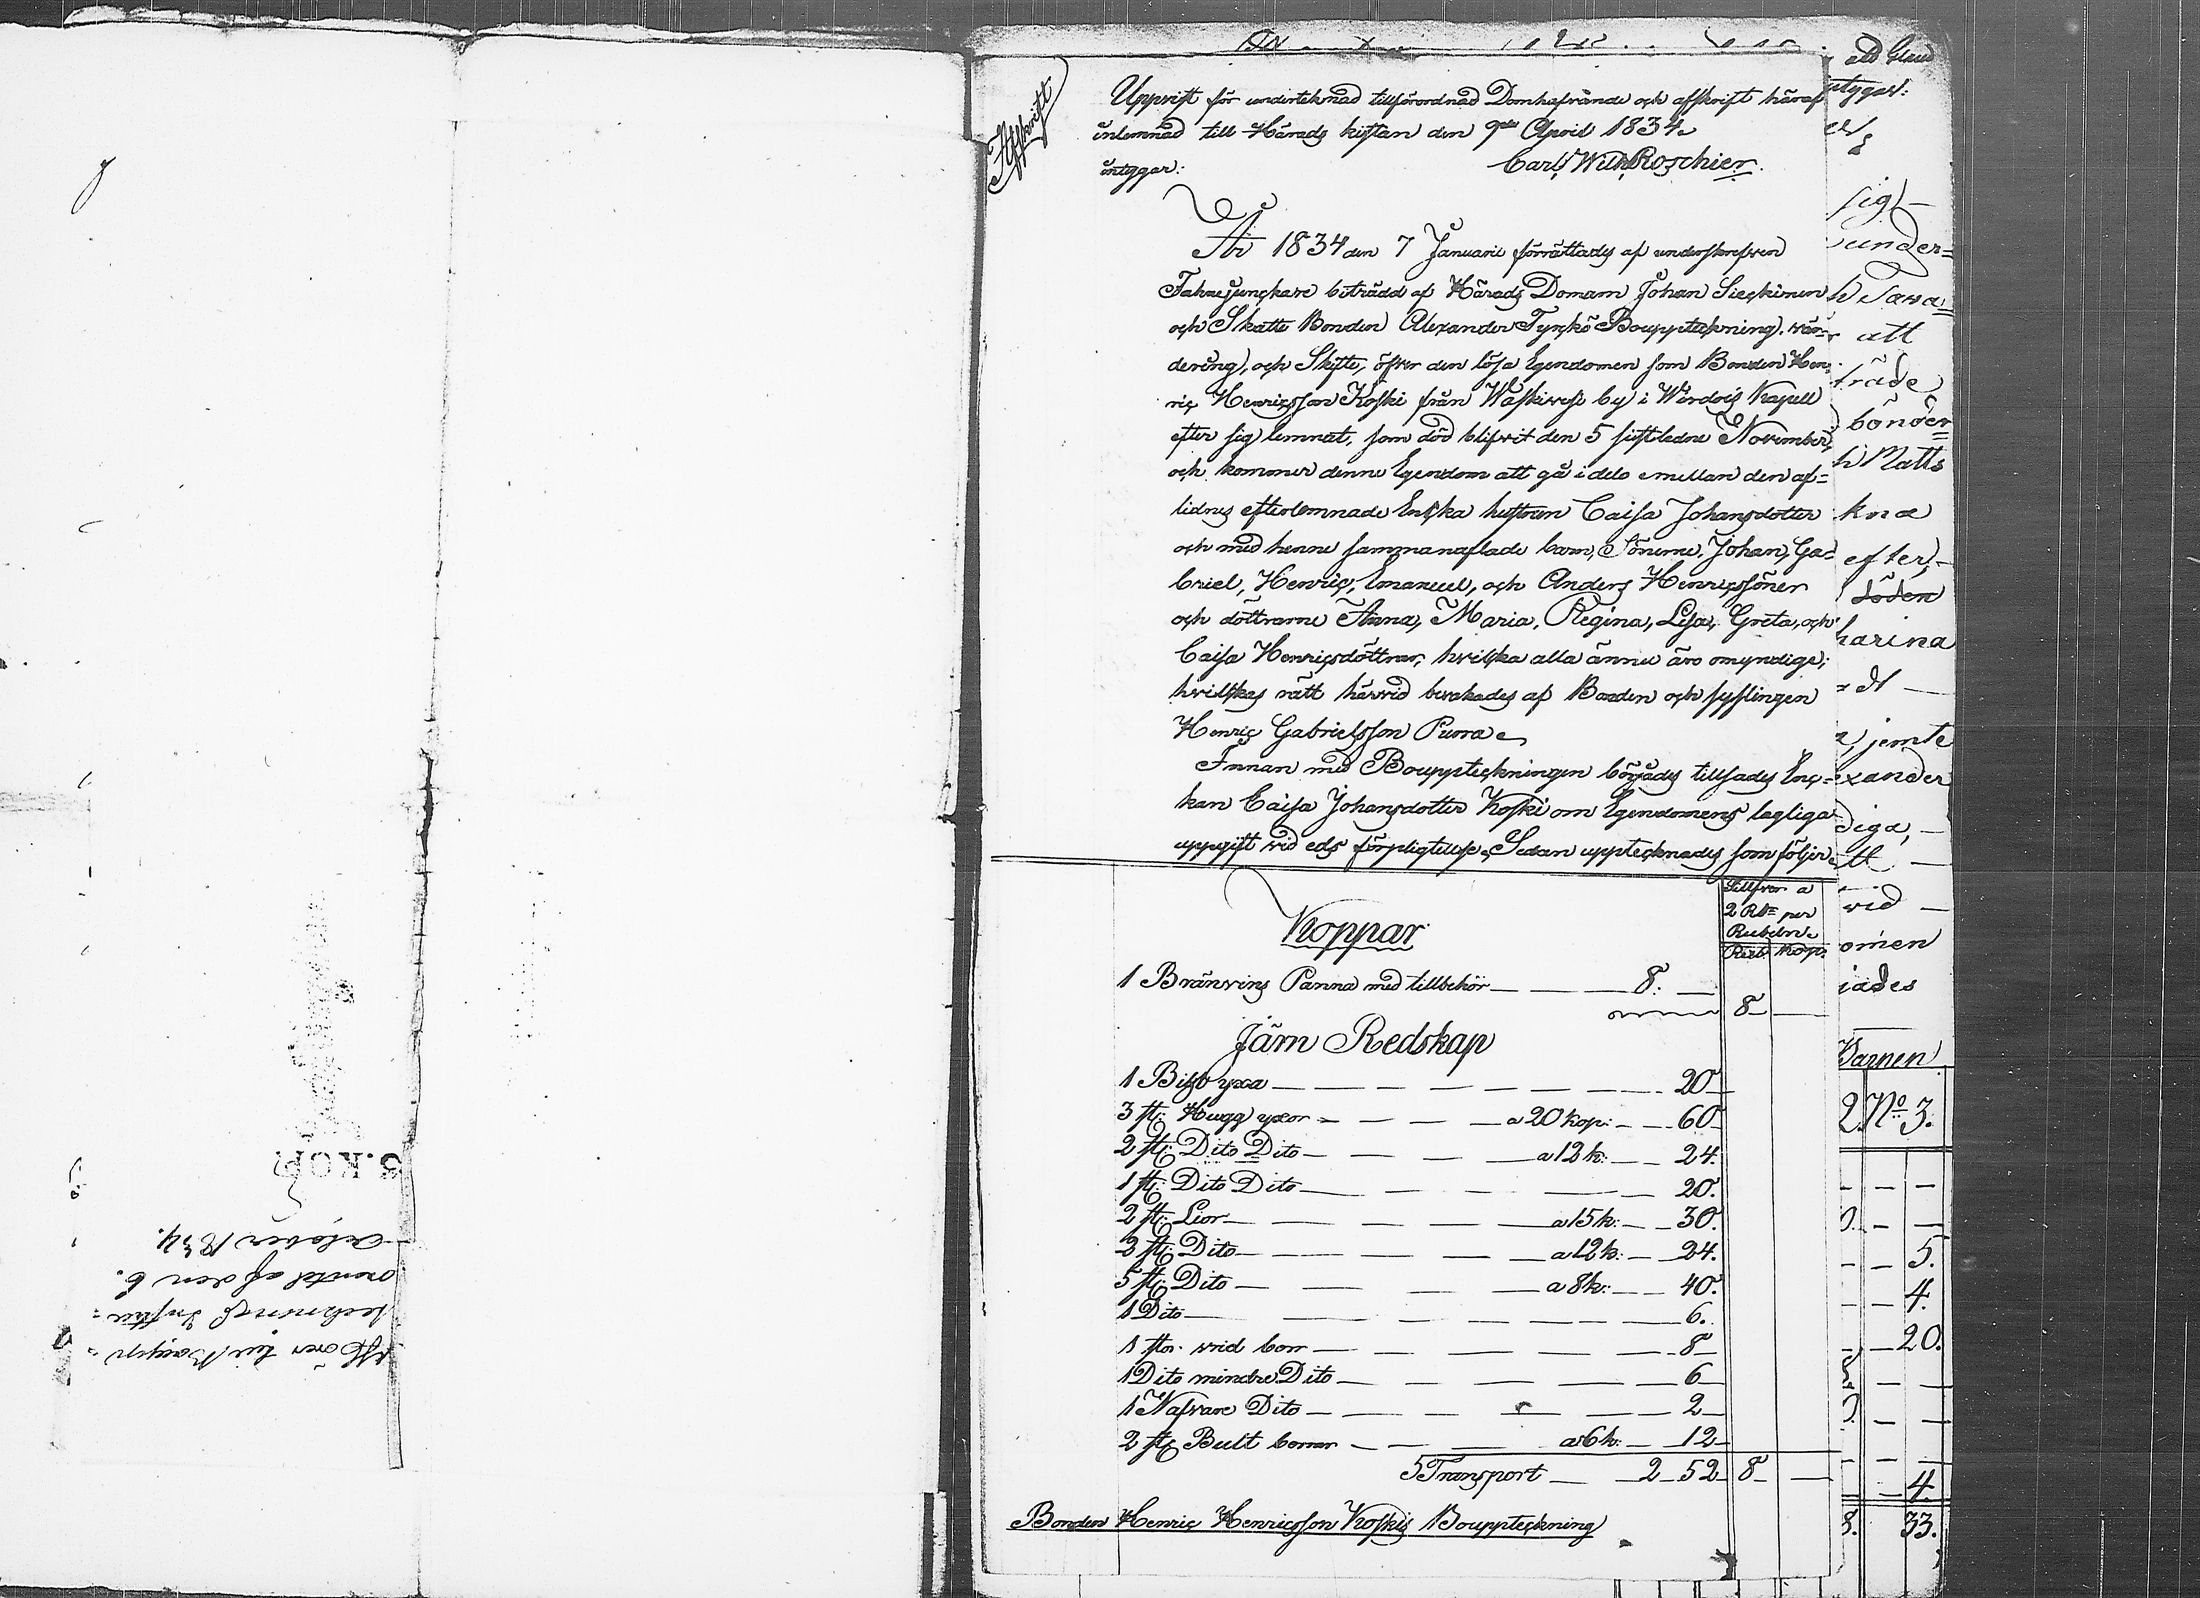 Affskrift
Uppvist för undertecknad tillförordnad Domhafvande och affskrift häraf
inlemnad till Härads kistan den 9de April 1834.
intygar: Carl Wilh Roschier.
År 1834 den 7 Januarii förrättades af underskrefven
Fahnejunckare biträdd af Härads Domarn Johan Sieckinen
och Skatte Bonden Alexander Tyrckö Bouppteckning, vär-
dering, och Skifte, öfver den lösa Egendomen som Bonden Hen-
ric Henricsson Koski från Waskivesi by i Wirdois Kapell
efter sig lemnat, som död blifvit den 5 sistledne November,
och kommer denne Egendom att gå i dela emellan den af-
lidnes efterlemnade Encka hustrun Caisa Johansdotter
och med henne sammanaflade barn, Sönerne, Johan, Ga-
briel, Henric, Emanuel, och Anders Henricssöner
och döttrarne Anna, Maria, Regina, Lisa, Greta, och
Caisa Henricsdöttrar, hvilka alla ännu äro omyndige;
hvilkas rätt härvid bevakades af Bonden och sysslingen
Henric Gabrielsson Purra.
Innan med Bouppteckningen börjades tillsades Enc-
kan Caisa Johansdotter Koski om Egendomens lagliga
uppgift vid eds förpligtelse, Sedan upptecknades som följer
Silfver a
2 Rb per
Rubeln.
Koppar Rub. Kop.
1 Bränvins Panna med tillbehör 8.
8
Järn Redskap
1 Bist yxa 20
3 st: Hugg yxor a 20 kop: 60
2 st: Dito Dito a 12 k: 24.
1 st: Dito Dito 20.
2 st: Lior a 15 k: 30.
2 st: Dito a 12 k: 24.
5 st: Dito a 8 k: 40.
1 Dito 6.
1 stor vrid borr 8
1 Dito mindre Dito 6
1 Nafvare Dito 2
2 st: Bult borrar a 6 k: 12
Transport 2 52 8
Bonden Henric Henricsson Koskis Bouppteckning
sig
under=
att
träde
bönder
Matts
kna
efter,
döden
harina
jemte
exander
diga,
vid
omen
jades
Barnen
2 No 3.
5.
4.
20.
4.
33.
5. KOP.
October 1834.
af den 6.